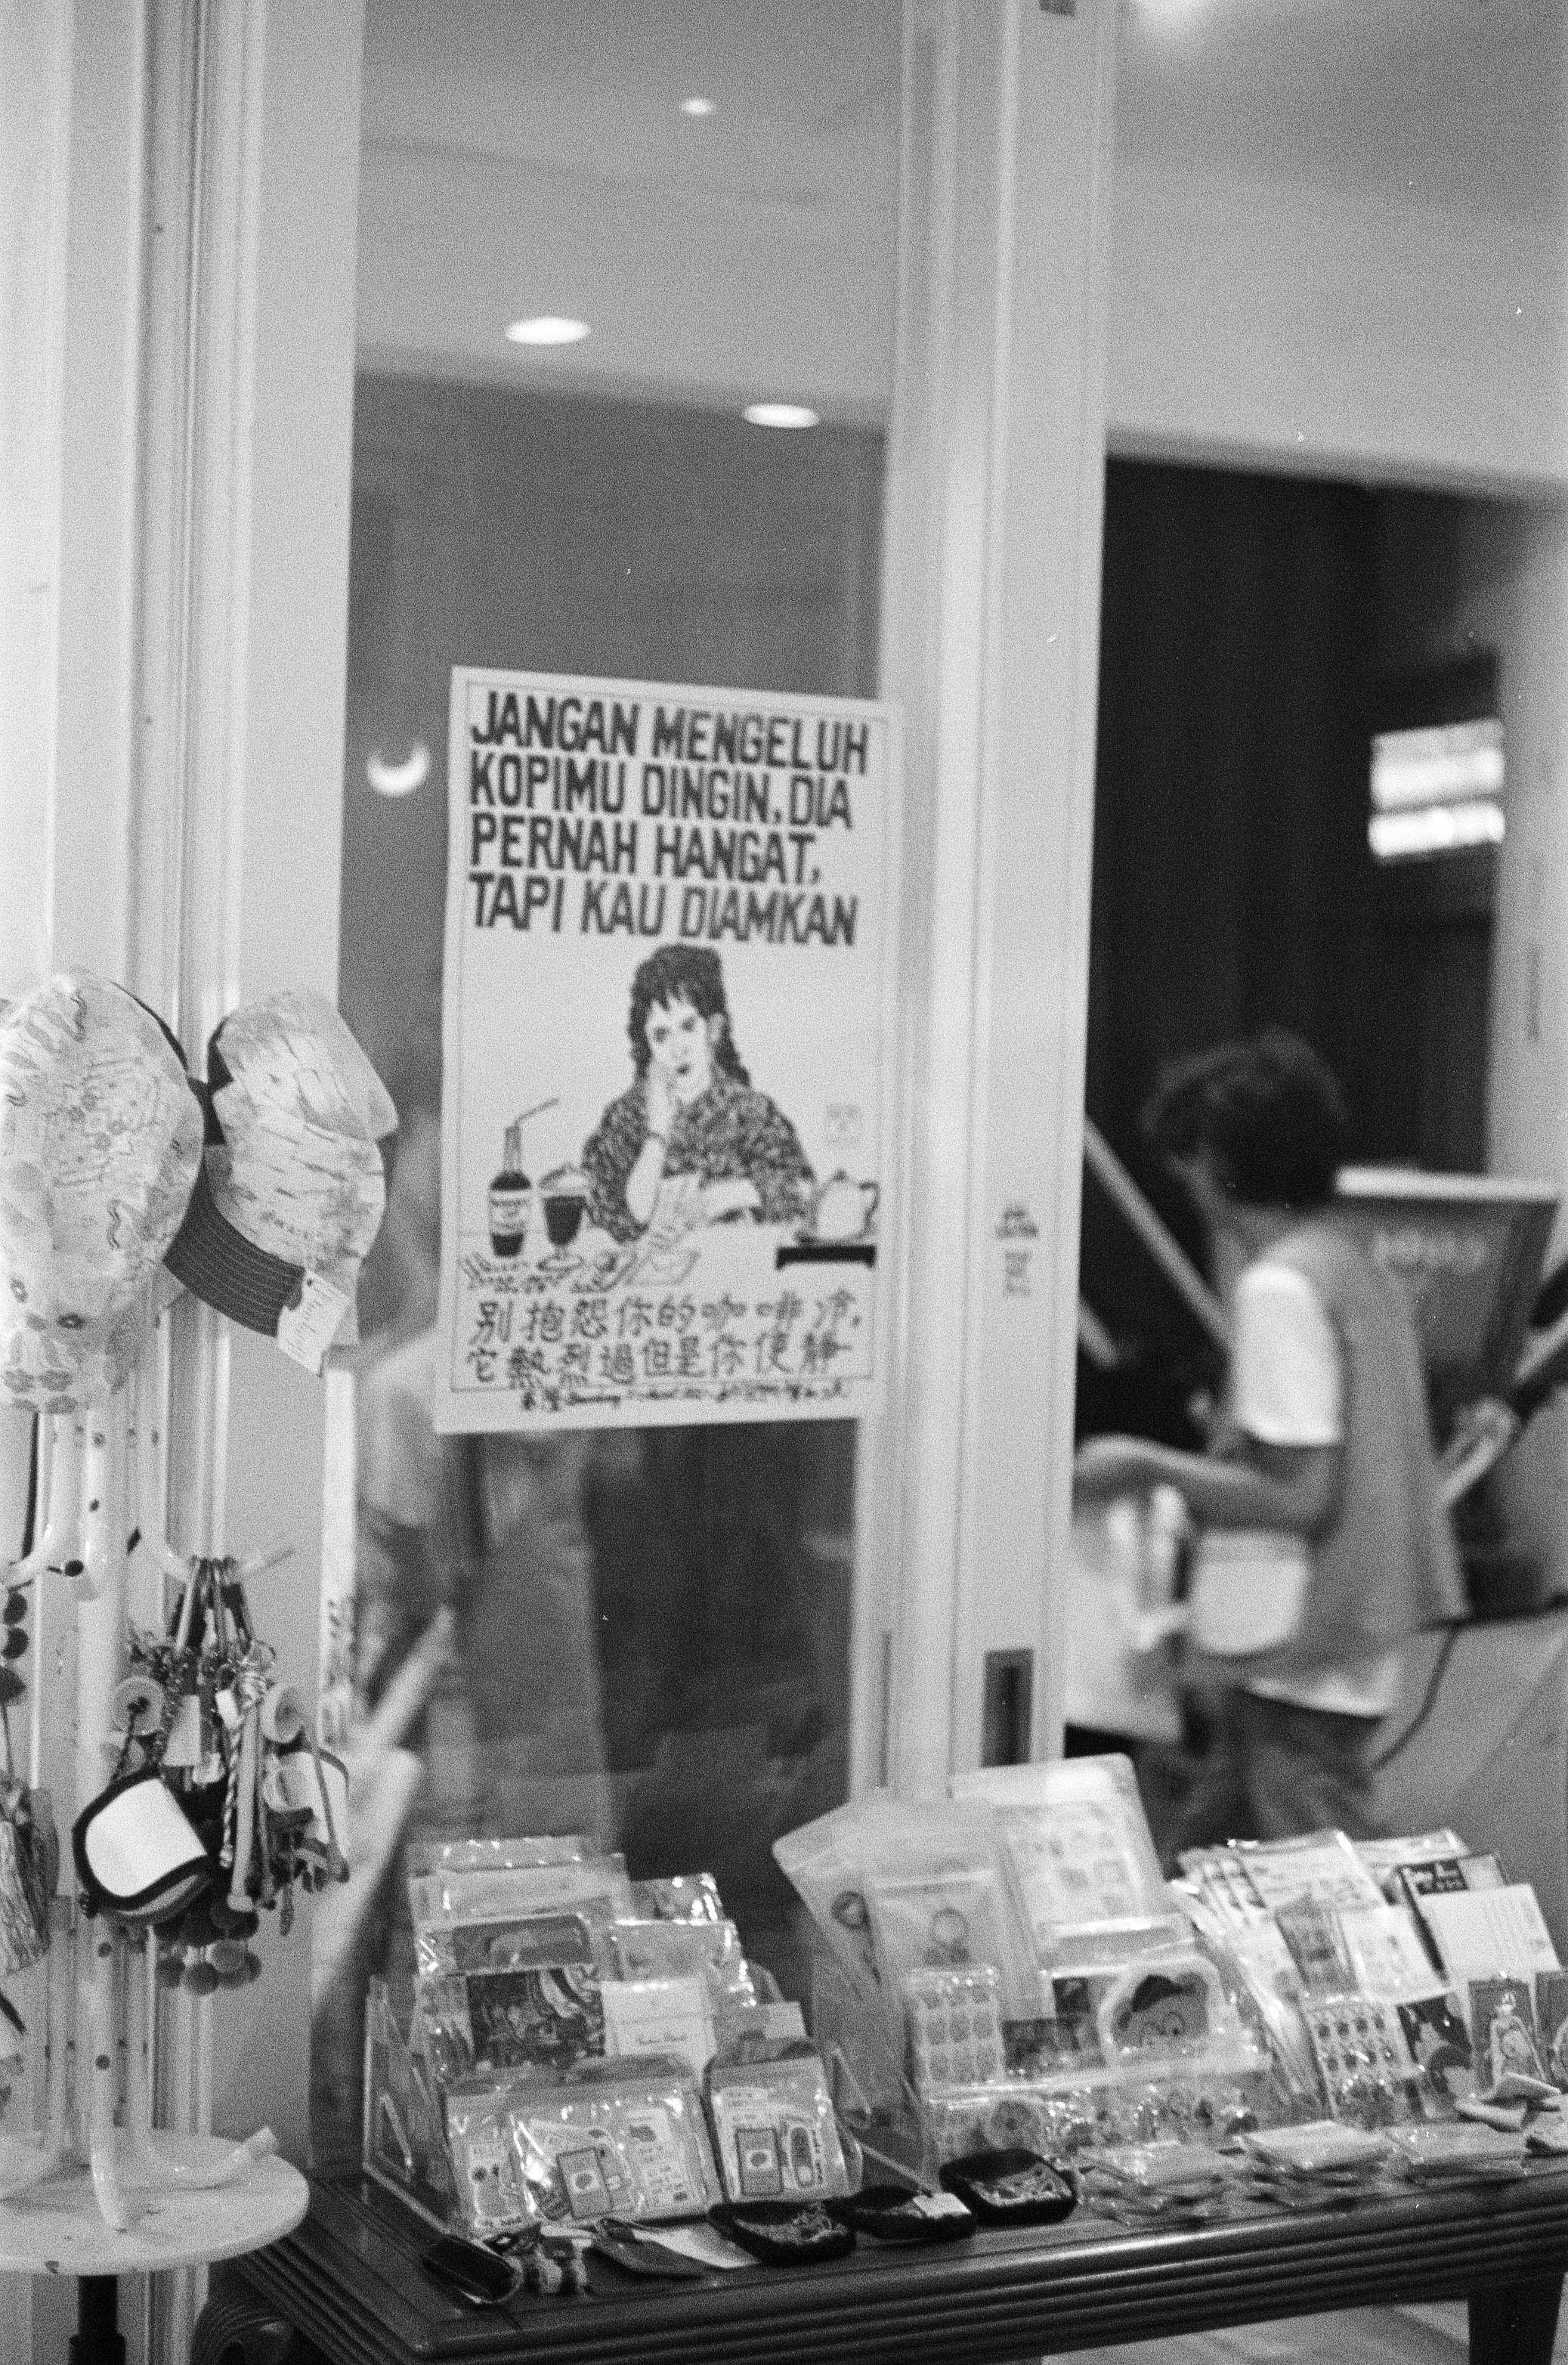 JANGAN MENGELUH
KOPIMU DINGIN, DIA
PERNAH HANGAT,
TAPI KAU DIAMKAN
别抱怨你的咖啡冷,
它熱烈過但是你使静